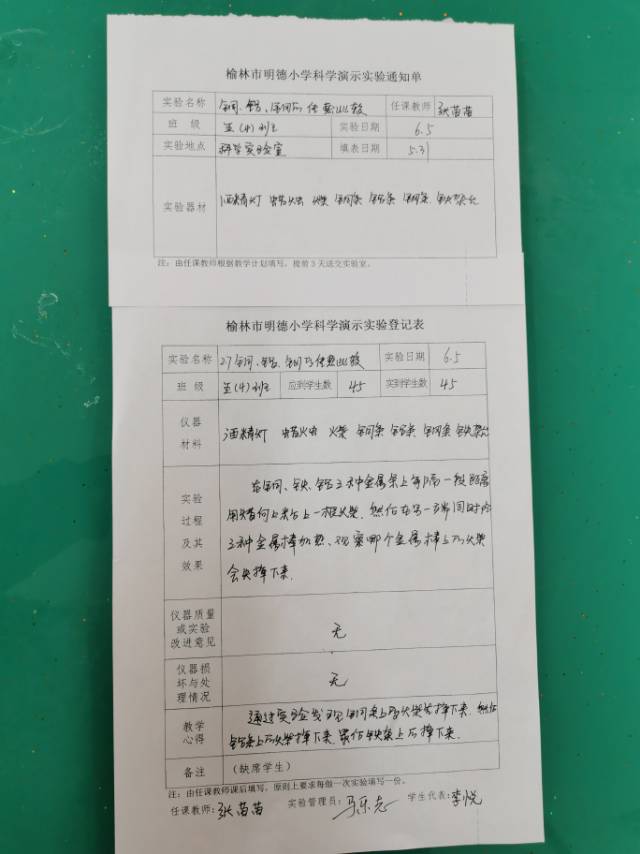 榆林市明德小学科学演示实验通知单
实验名称 铜、铝、钢的传热比较 任课教师 张苗苗
班 级 五(4)班 实验日期 6.5
实验地点 科学实验室 填表日期 5.31
实验器材 酒精灯 蜡烛 火柴 铜条 铝条 钢条 铁架台
注：由任课教师根据教学计划填写，提前3天送交实验室。
榆林市明德小学科学演示实验登记表
实验名称 27铜、铝、钢的传热比较 实验日期 6.5
班 级 五(4)班 应到学生数 45 实到学生数 45
仪器
材料
酒精灯 蜡烛 火柴 铜条 铝条 钢条 铁架台
实验
过程
及其
效果
在铜、铁、铝三种金属条上每隔一段距离
用蜡油粘上一根火柴，然后在另一端同时给
三种金属棒加热、观察哪个金属棒上的火柴
会先掉下来.
仪器质量
或实验
改进意见
无
仪器损
坏与处
理情况
无
教学
心得
通过实验发现铜条上的火柴先掉下来，然后
铝条上的火柴掉下来，最后铁条上的掉下来.
备注 (缺席学生)
注：由任课教师课后填写，原则上要求每做一次实验填写一份。
任课教师:张苗苗 实验管理员:马乐 学生代表:李悦